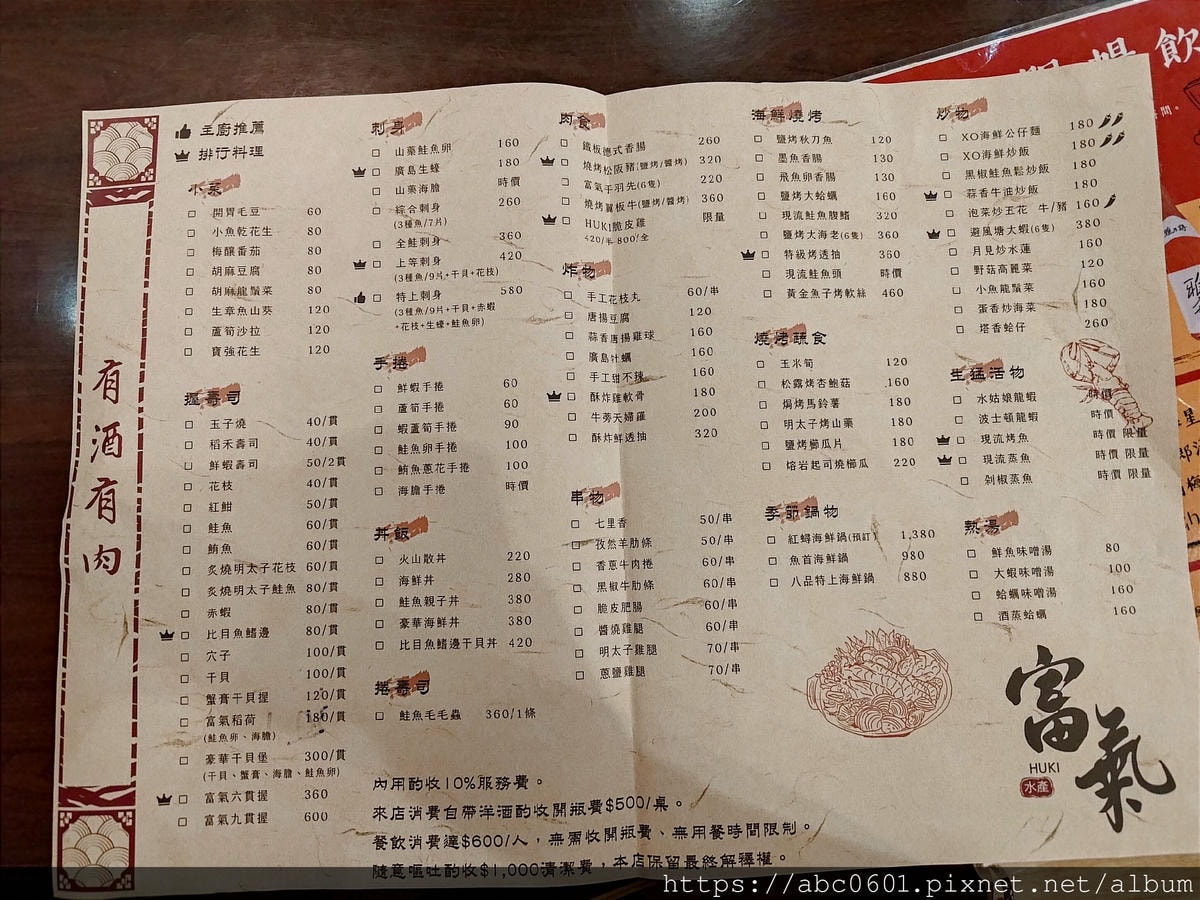 有酒有肉
主廚推薦
排行料理
小菜
開胃毛豆 60
小魚乾花生 80
梅釀番茄 80
胡麻豆腐 80
胡麻龍鬚菜 80
生章魚山葵 120
蘆筍沙拉 120
寶強花生 120
握壽司
玉子燒 40/貫
稻禾壽司 40/貫
鮮蝦壽司 50/2貫
花枝 40/貫
紅魽 50/貫
鮭魚 60/貫
鮪魚 60/貫
炙燒明太子花枝 60/貫
炙燒明太子鮭魚 80/貫
赤蝦 80/貫
比目魚鰭邊 80/貫
穴子 100/貫
干貝 100/貫
蟹膏干貝握 120/貫
富氣稻荷 180/貫
(鮭魚卵、海膽)
豪華干貝堡 300/貫
(干貝、蟹膏、海膽、鮭魚卵)
富氣六貫握 360
富氣九貫握 600
刺身
山藥鮭魚卵 160
廣島生蠔 180
山藥海膽 時價
綜合刺身 260
(3種魚/7片)
全鮭刺身 360
上等刺身 420
(3種魚/9片+干貝+花枝)
特上刺身 580
(3種魚/9片+干貝+赤蝦
+花枝+生蠔+鮭魚卵)
手捲
鮮蝦手捲 60
蘆筍手捲 60
蝦蘆筍手捲 90
鮭魚卵手捲 100
鮪魚蔥花手捲 100
海膽手捲 時價
丼飯
火山散丼 220
海鮮丼 280
鮭魚親子丼 380
豪華海鮮丼 380
比目魚鰭邊干貝丼 420
捲壽司
鮭魚毛毛蟲 360/1條
肉食
鐵板德式香腸 260
燒烤松阪豬(鹽烤/醬烤) 320
富氣手羽先(6隻) 220
燒烤翼板牛(鹽烤/醬烤) 360
HUKI脆皮雞 限量
420/半 800/全
炸物
手工花枝丸 60/串
唐揚豆腐 120
蒜香唐揚雞球 160
廣島牡蠣 160
手工甜不辣 160
酥炸雞軟骨 180
牛蒡天婦羅 200
酥炸鮮透抽 320
串物
七里香 50/串
孜然羊肋條 50/串
香蔥牛肉捲 60/串
黑椒牛肋條 60/串
脆皮肥腸 60/串
醬燒雞腿 60/串
明太子雞腿 70/串
蔥鹽雞腿 70/串
海鮮燒烤
鹽烤秋刀魚 120
墨魚香腸 130
飛魚卵香腸 130
鹽烤大蛤蠣 160
現流鮭魚腹鰭 320
鹽烤大海老(6隻) 360
特級烤透抽 360
現流鮭魚頭 時價
黃金魚子烤軟絲 460
燒烤蔬食
玉米筍 120
松露烤杏鮑菇 160
焗烤馬鈴薯 180
明太子烤山藥 180
鹽烤櫛瓜片 180
熔岩起司燒櫛瓜 220
季節鍋物
紅蟳海鮮鍋(預訂) 1,380
魚首海鮮鍋 980
八品特上海鮮鍋 880
炒物
XO海鮮公仔麵 180
XO海鮮炒飯 180
黑椒鮭魚鬆炒飯 180
蒜香牛油炒飯 180
泡菜炒五花 牛/豬 160
避風塘大蝦(6隻) 380
月見炒水蓮 160
野菇高麗菜 120
小魚龍鬚菜 160
蛋香炒海菜 180
塔香蛤仔 260
生猛活物
水姑娘龍蝦 時價
波士頓龍蝦 時價 限量
現流烤魚 時價 限量
現流蒸魚 時價 限量
剁椒蒸魚 時價 限量
熱湯
鮮魚味噌湯 80
大蝦味噌湯 100
蛤蠣味噌湯 160
酒蒸蛤蠣 160
富氣
HUKI
水產
內用酌收10%服務費。
來店消費自帶洋酒酌收開瓶費$500/桌。
餐飲消費達$600/人，無需收開瓶費、無用餐時間限制。
隨意嘔吐酌收$1,000清潔費，本店保留最終解釋權。
暢飲
https://abc0601.pixnet.net/album